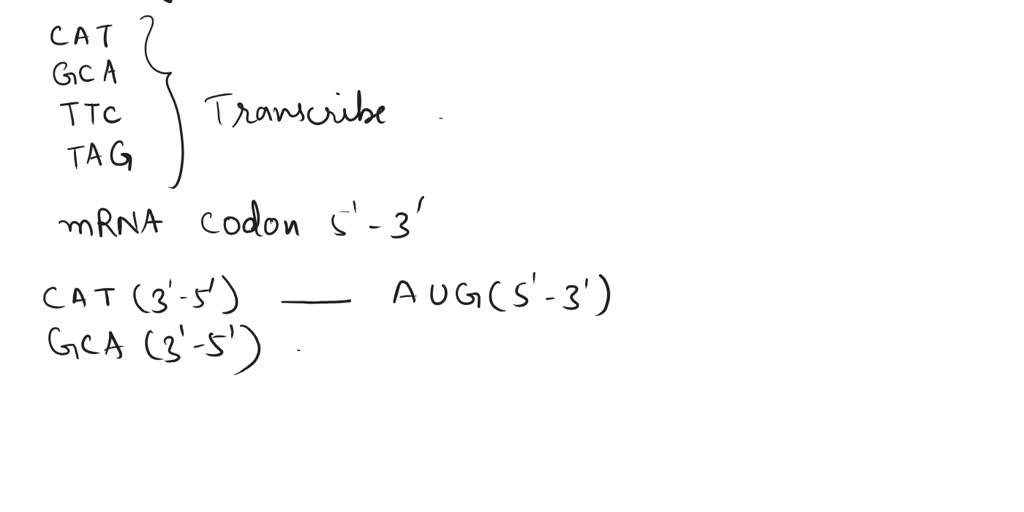 CAT
GCA
TTC
TAG
Transcribe
mRNA codon 5'-3'
CAT (3'-5') — AUG (5'-3')
GCA (3'-5')